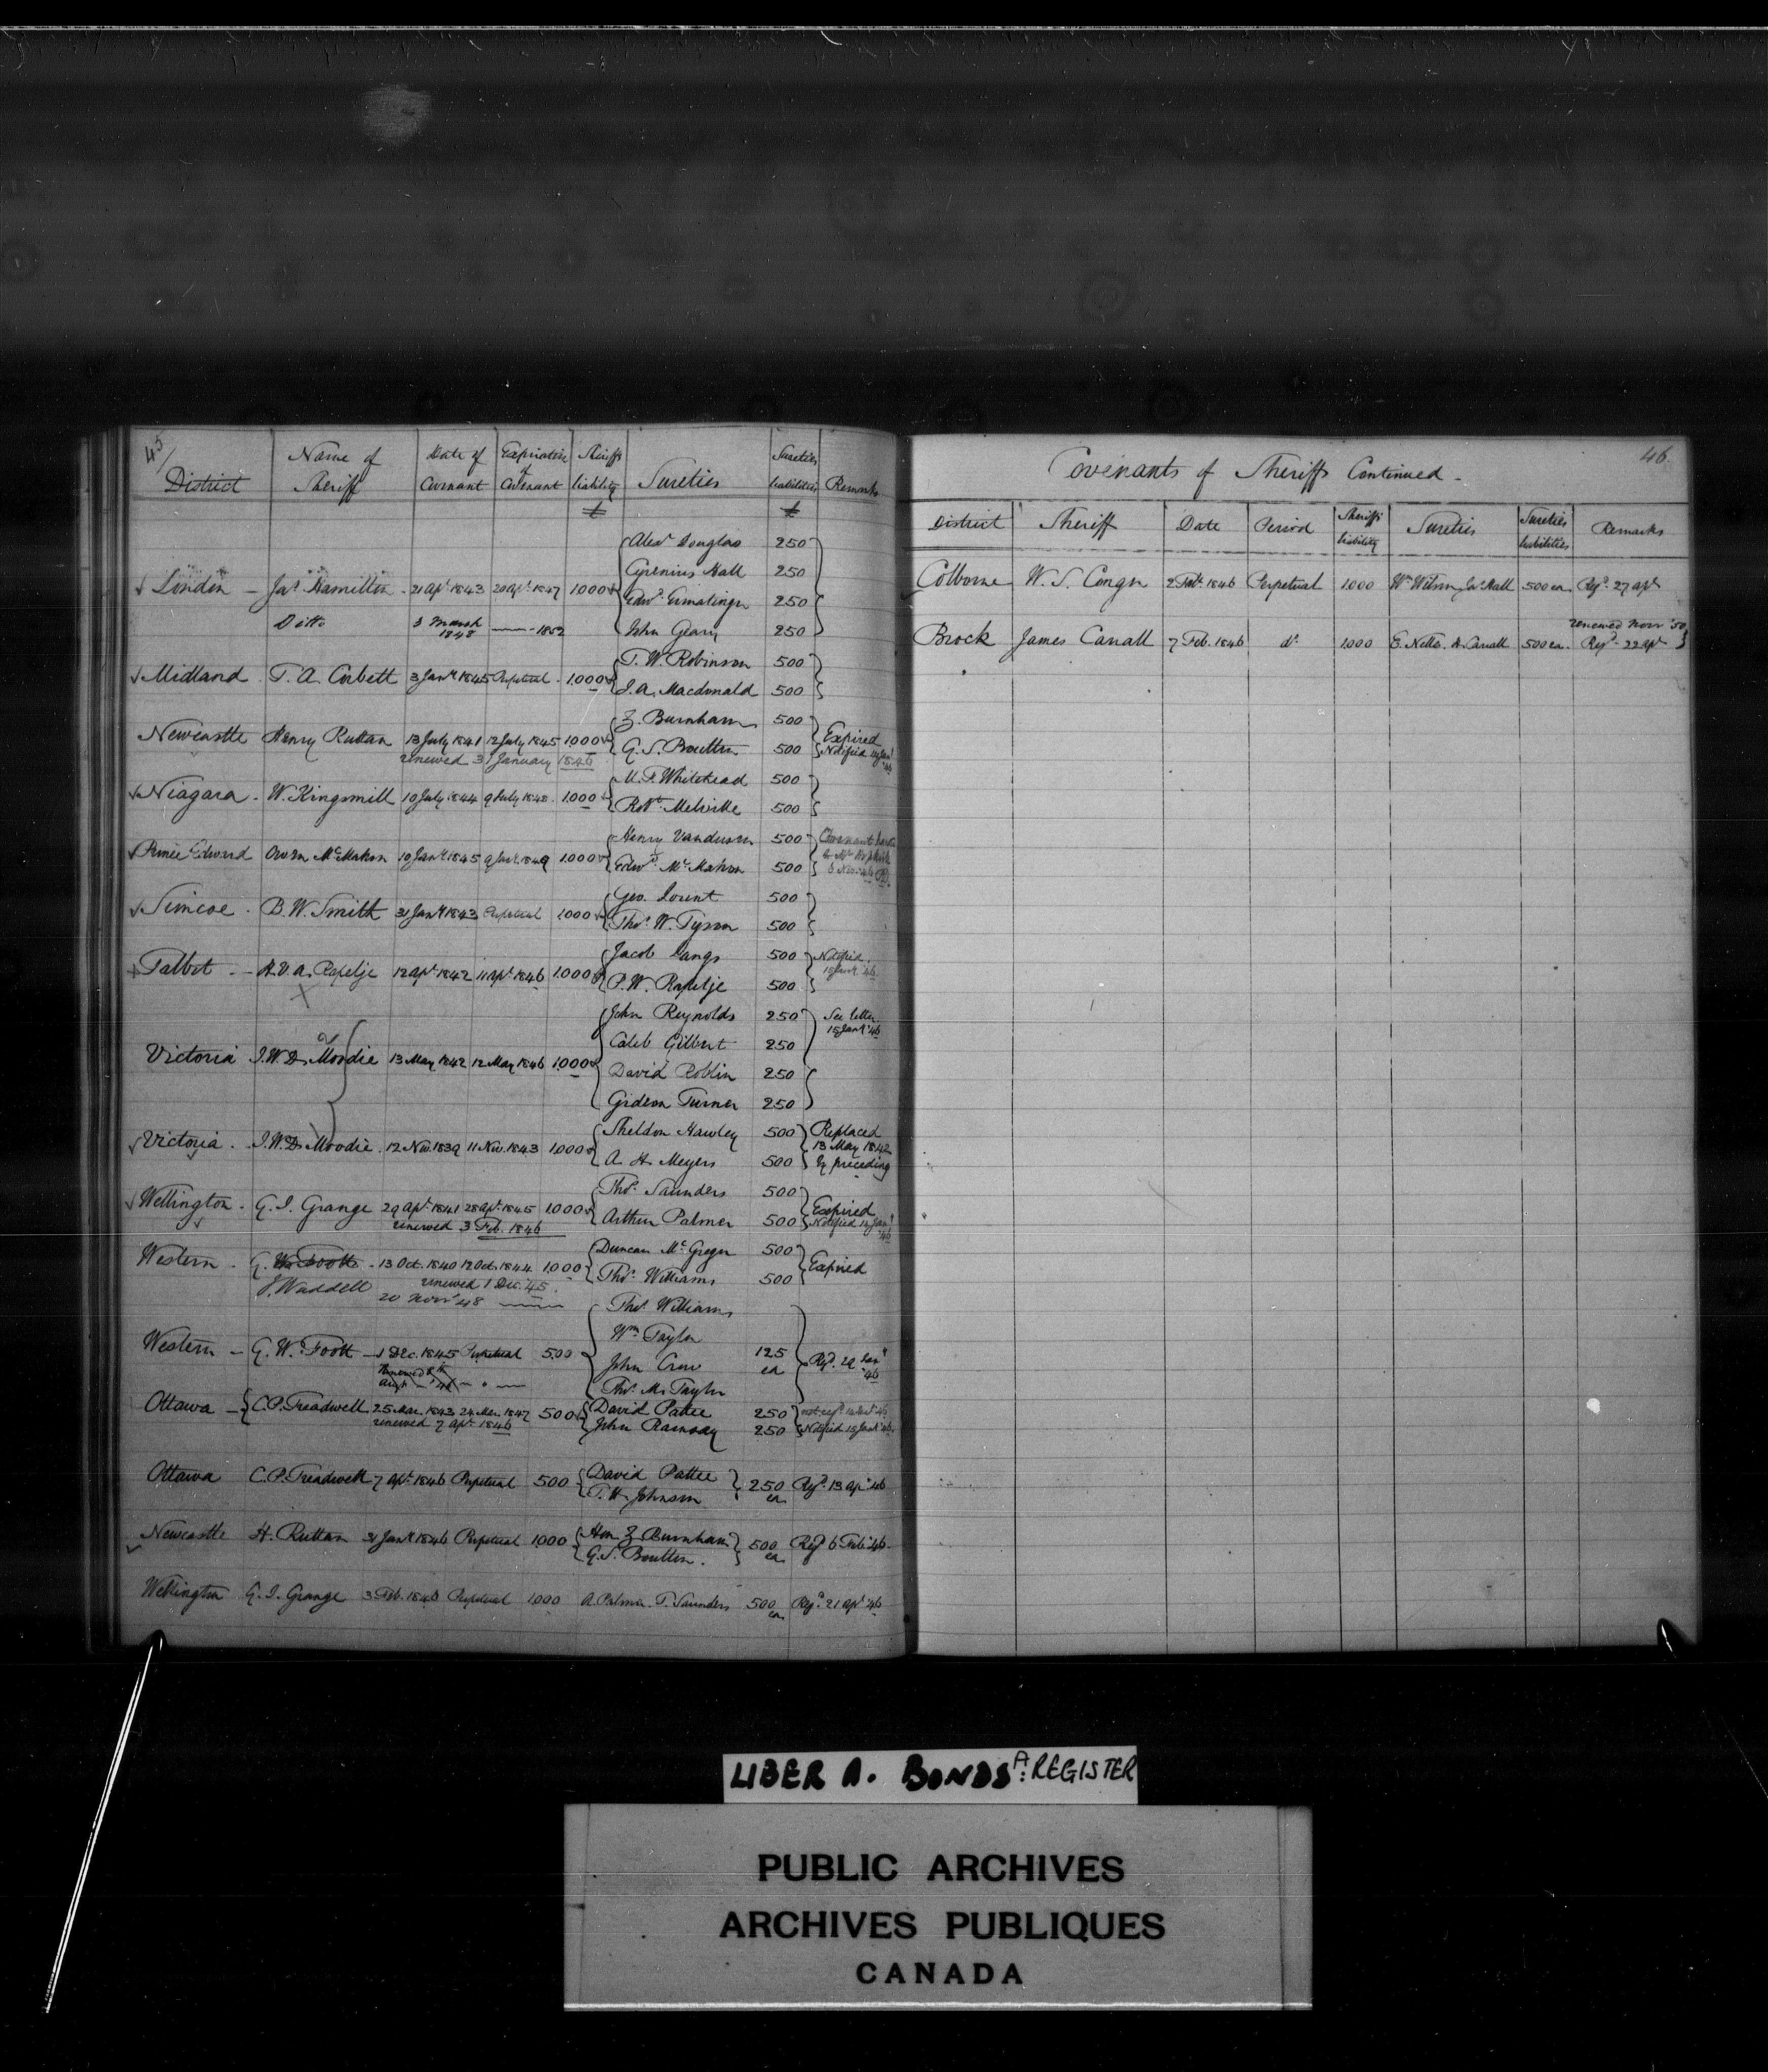 45/
District | Name of Sheriff | Date of Covenant | Expiration of Covenant | Sheriffs liability £ | Sureties | Sureties liabilities £ | Remarks
Alexr Douglas 250
Hall 250
London - Jas Hamilton - 21 Apl 1843 20 Apl 1847 1000 Edwd Ermatinger 250
Ditto 3 March 1848 —— 1852 John Geary 250
T. W. Robinson 500
Midland . T. A. Corbett 3 Jany 1845 Perpetual . 1000 J. A. Macdonald 500
Z. Burnham 500
Newcastle Henry Ruttan 13 July 1841 12 July 1845 1000 G. S. Boulton 500 Expired
renewed 31 January 1846 Notified
M. F. Whitehead 500
Niagara . W. Kingsmill 10 July 1844 9 July 1848 . 1000 Robt Melville 500
Henry Vandusen 500 Covenant
Prince Edward Owen McMahon 10 Jany 1845 9 Jany 1849 1000 Edwd McMahon 500
Geo. Lount 500
Simcoe . B. W. Smith 31 Jany 1843 Perpetual 1000 Thos W. Tyson 500
Jacob Langs 500 Notified
Talbot . - H. V. A. Rapelje 12 Apl 1842 11 Apl 1846 1000 P. W. Rapelje 500 15 Jany '46
John Reynolds 250 See letter
Caleb Gilbert 250 15 Jany '46
Victoria J. W. D. Moodie 13 May 1842 12 May 1846 1000 David Roblin 250
Gideon Turner 250
Sheldon Hawley 500 Replaced
Victoria . J. W. D. Moodie . 12 Nov. 1839 11 Nov. 1843 1000 A. H. Meyers 500 13 May 1842 by preceding
Thos Saunders 500
Wellington . G. J. Grange 29 Apl 1841 28 Apl 1845 1000 Arthur Palmer 500 Expired
renewed 3 Feb. 1846 Notified 14 Jany '46
Duncan McGregor 500
Western . G. W. Foott - 13 Oct. 1840 12 Oct. 1844 1000 Thos Williams 500 Expired
J. Waddell renewed 1 Dec. '45 .
20 Novr '48 ——
Thos Williams
Wm Taylor
Western - G. W. Foott - 1 Dec. 1845 Perpetual 500 John Crow 125 ea Regd 29 Jany '46
Thos M. Taylor
Ottawa - C. P. Treadwell 25 Mar. 1843 24 Mar. 1847 500 David Pattee 250
renewed 7 Apl 1846 John Ramsay 250 Notified 15 Jany '46
Ottawa C. P. Treadwell 7 Apl 1846 Perpetual 500 David Pattee T. H. Johnson 250 ea Regd 13 Apl '46
Newcastle H. Ruttan 31 Jany 1846 Perpetual 1000 Hon Z Burnham G. S. Boulton . 500 ea Regd 6 Feb '46 .
Wellington G. J. Grange 3 Feb. 1846 Perpetual 1000 A. Palmer . T. Saunders 500 ea Regd 21 Apl '46
46
Covenants of Sheriffs Continued -
District | Sheriff | Date | Period | Sheriffs liability | Sureties | Sureties liabilities | Remarks
Colborne W. S. Conger 2 Feby 1846 Perpetual 1000 Wm Wilson Jas Hall 500 ea Regd 27 Apl
renewed Novr '50
Brock James Carrall 7 Feb. 1846 do 1000 H. Carrall 500 ea . Regd 22 Apl
LIBER A. BONDS A: REGISTER
PUBLIC ARCHIVES
ARCHIVES PUBLIQUES
CANADA